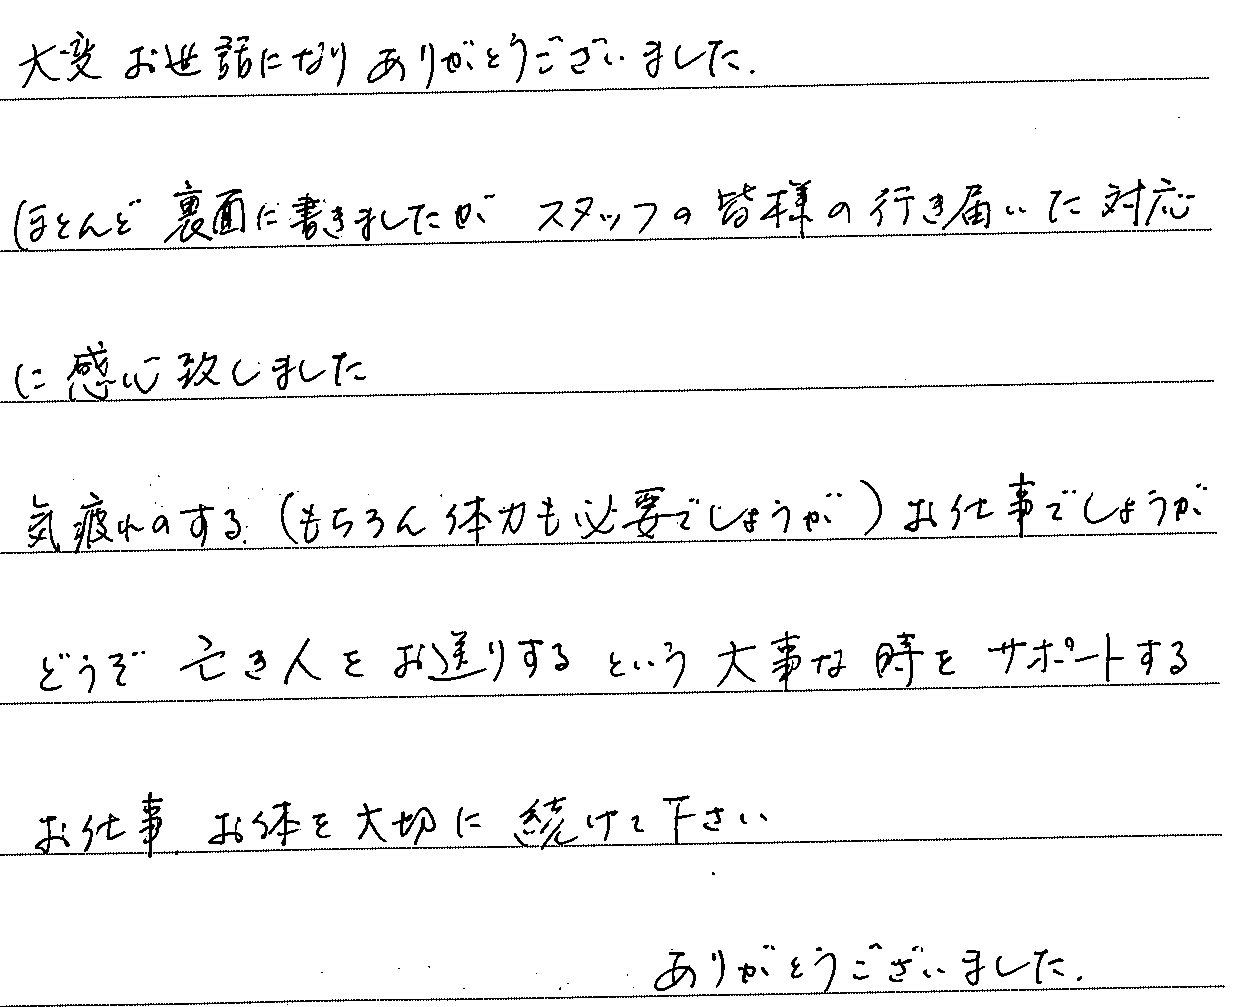 大変 お世話になり ありがとうございました.
ほとんど 裏面に書きましたが スタッフの 皆様の行き届いた対応
に感心致しました
気疲れのする.(もちろん体力も必要でしょうが)お仕事でしょうが
どうぞ 亡き人を お送りする という 大事な 時を サポートする
お仕事、お体を大切に 続けて下さい
ありがとうございました.